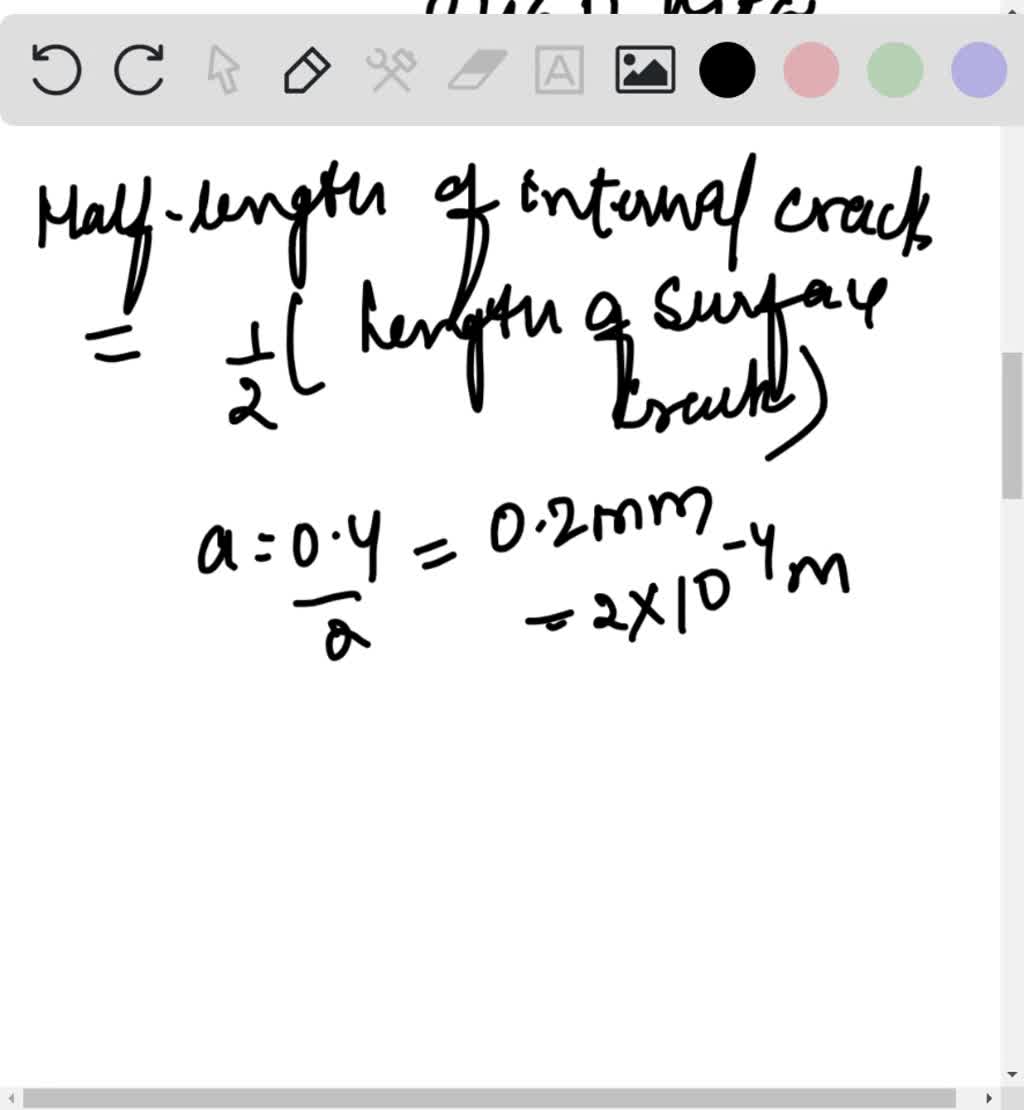 Half-length of internal crack
= 1/2 ( Length of Surface
Crack)
a = 0.4/2 = 0.2mm
= 2×10⁻⁴ m